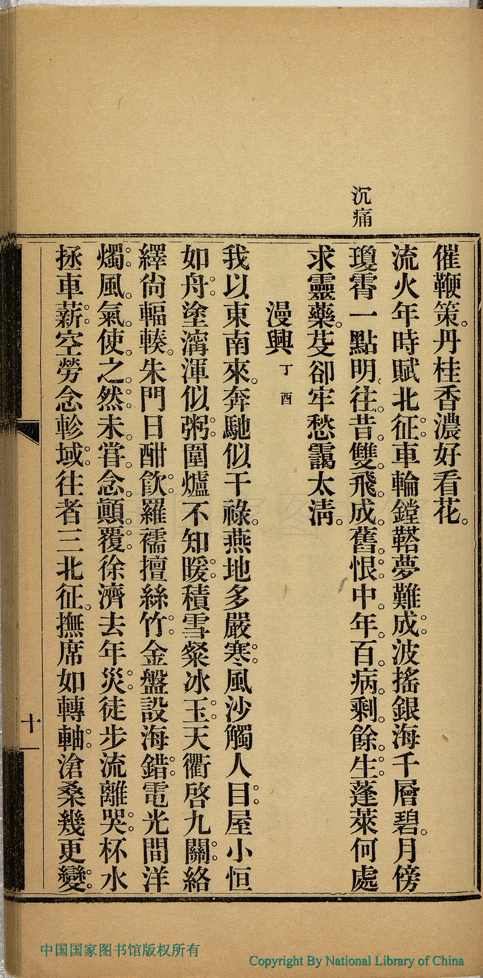 沉痛
催鞭策丹桂香濃好看花。
流火年時賦北征車輪鏜鞳夢難成波搖銀海千層碧月傍
瓊霄一點明往昔雙飛成舊恨中年百病剩餘生蓬萊何處
求靈藥芟卻牢愁靄太淸。
漫興 丁酉
我以東南來奔馳似干祿燕地多嚴寒風沙觸人目屋小恒
如舟塗濘渾似粥圍爐不知暖積雪粲冰玉天衢啓九關絡
繹尙輻輳朱門日酣飮羅襦擅絲竹金盤設海錯電光間洋
燭風氣使之然未甞念顚覆徐濟去年災徒步流離哭杯水
拯車薪空勞念畛域往者三北征撫席如轉軸滄桑幾更變
十一
中国国家图书馆版权所有
Copyright By National Library of China